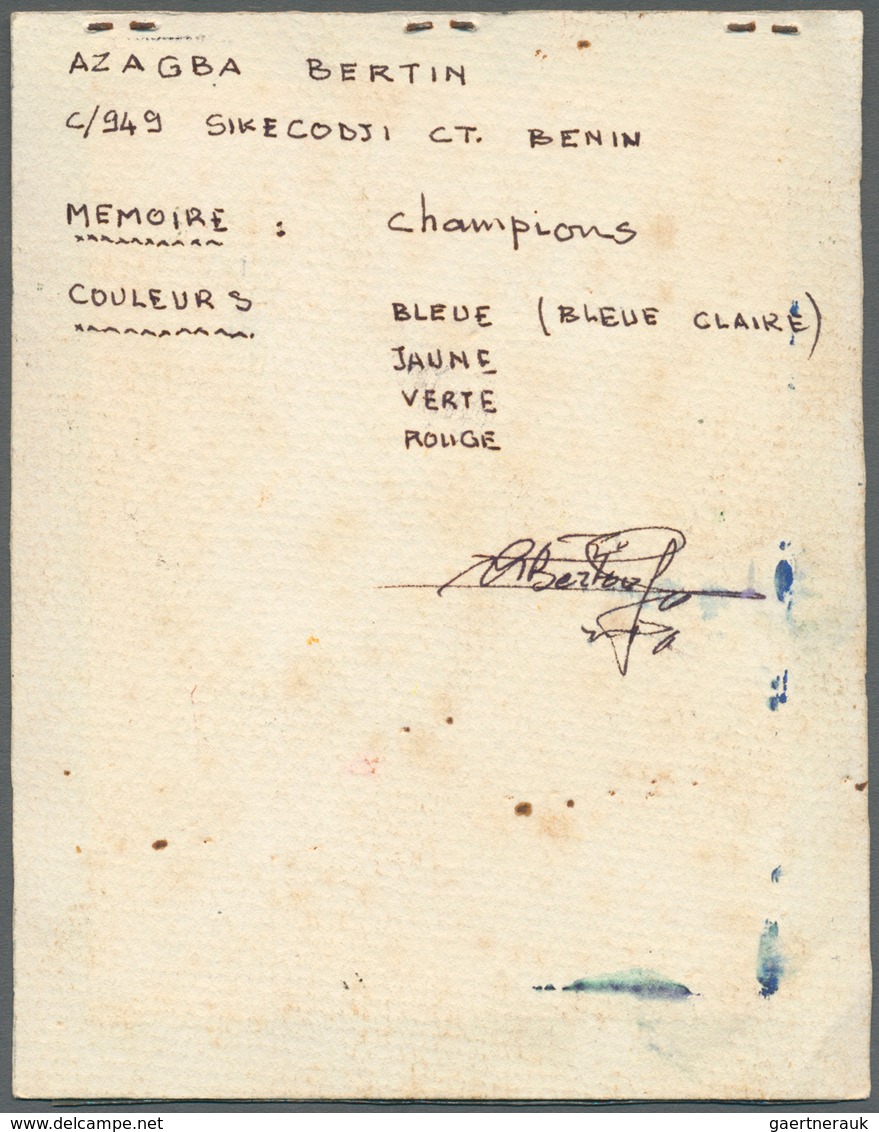 AZAGBA BERTIN
C/949 SIKECODJI CT. BENIN
MEMOIRE : Champions
COULEURS BLEUE (BLEUE CLAIRE)
JAUNE
VERTE
ROUGE
delcampe.net
gaertnerauk